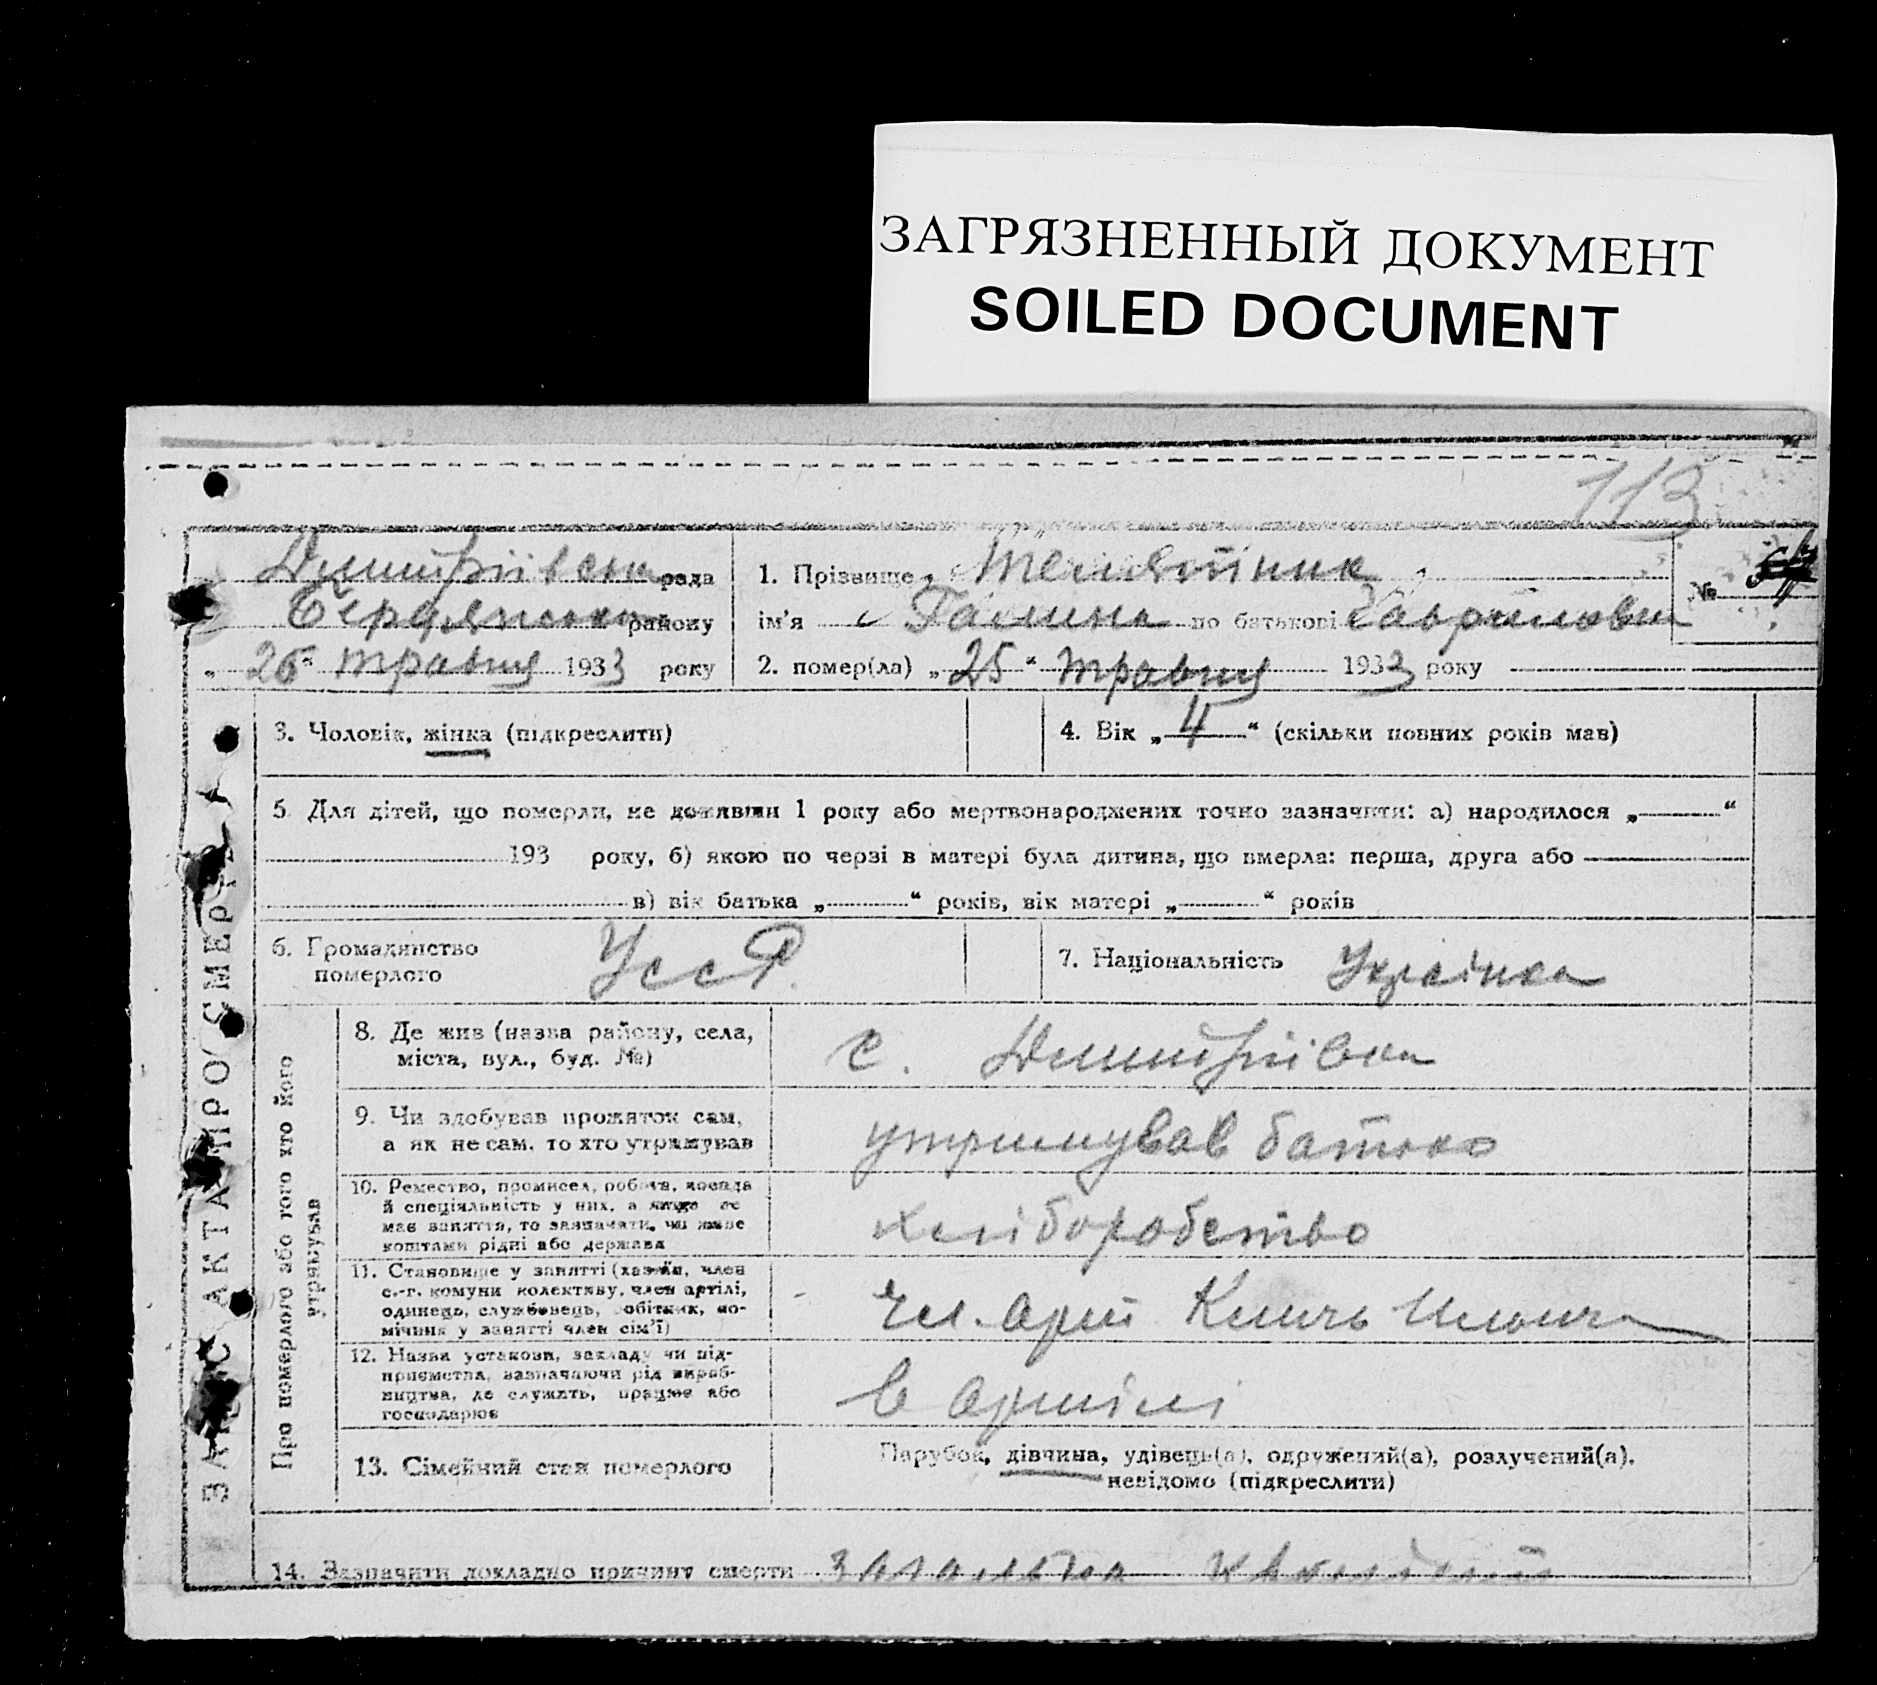 ЗАГРЯЗНЕННЫЙ ДОКУМЕНТ
SOILED DOCUMENT
113
Дмитріівська рада
Бердянського району
„26“ травня 1933 року
1. Прізвище Телятник
ім'я Галина по батькові Гаврилівна
2. помер(ла) „25“ травня 1933 року
№
3. Чоловік, жінка (підкреслити)
4. Вік „4“ (скільки повних років мав)
5. Для дітей, що померли, не доживши 1 року або мертвонароджених точно зазначити: а) народилося „ “
193 року, б) якою по черзі в матері була дитина, що вмерла: перша, друга або
в) вік батька „ “ років, вік матері „ “ років
6. Громадянство
померлого
УССР
7. Національність Українка
ЗАПИС АКТА ПРО СМЕРТЬ
Про померлого або того хто його
утримував
8. Де жив (назва району, села,
міста, вул., буд. №)
с. Дмитріівка
9. Чи здобував прожиток сам,
а як не сам, то хто утримував
утримував батько
10. Ремество, промисел, робота, посада
й спеціяльність у них, а якщо не
має заняття, то зазначити, чи живе
коштами рідні або держава
хліборобство
11. Становище у занятті (хазяїн, член
с.-г. комуни колективу, член артілі,
одинець, службовець, робітник, по-
мічник у занятті член сім'ї)
чл. арт Ильича
12. Назва установи, закладу чи під-
приємства, зазначаючи рід вироб-
ництва, де служить, працює або
господарює
в артілі
13. Сімейний стан померлого
Парубок, дівчина, удівець(а), одружений(а), розлучений(а),
невідомо (підкреслити)
14. Зазначити докладно причину смерти загальна